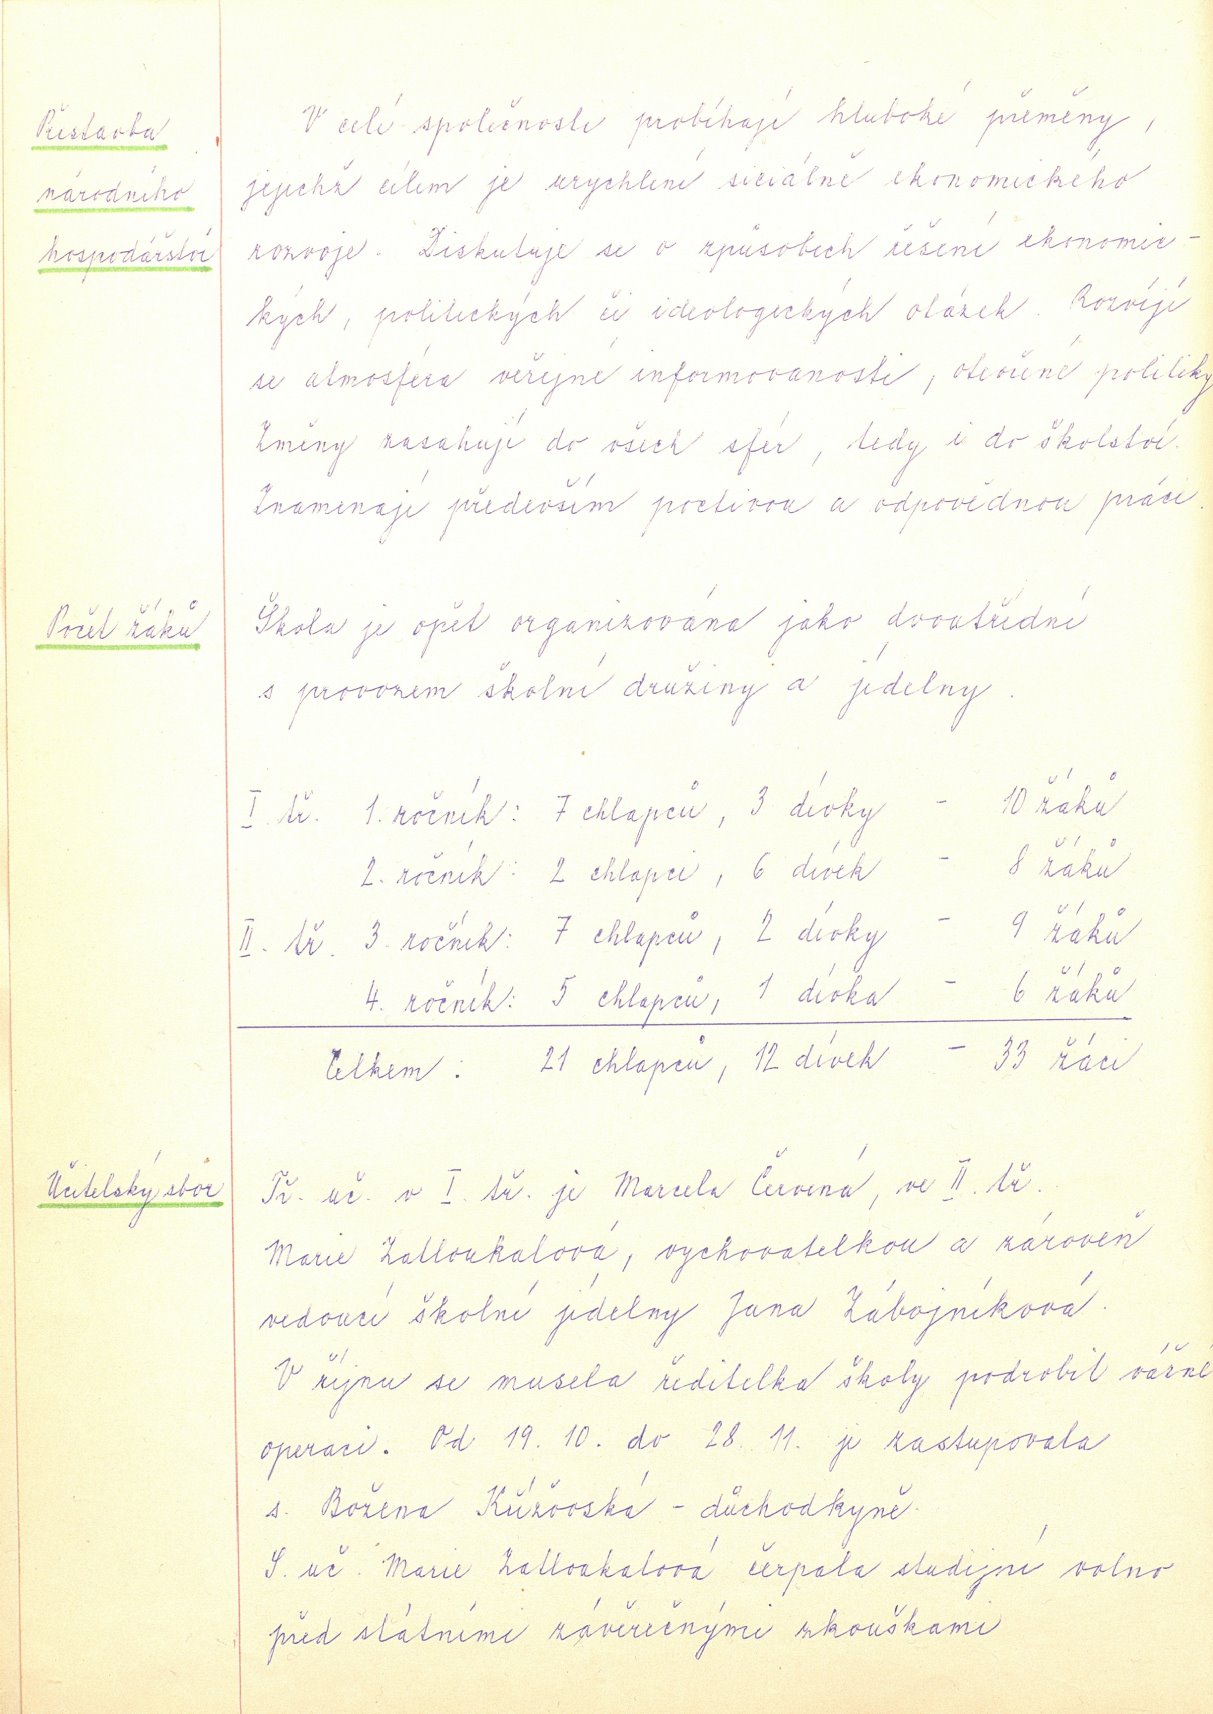 Přestavba
národního
hospodářství
V celé společnosti probíhají hluboké přeměny,
jejichž cílem je urychlení siciálně ekonomického
rozvoje. Diskutuje se o způsobech řešení ekonomic-
kých, politických či ideologických otázek. Rozvíjí
se atmosféra veřejné informovanosti, otevřené politiky
Změny zasahují do všech sfér, tedy i do školství.
Znamenají především poctivou a odpovědnou práci.
Počet žáků
Škola je opět organizována jako dvoutřídní
s provozem školní družiny a jídelny.
I. tř. 1. ročník: 7 chlapců, 3 dívky - 10 žáků
2. ročník: 2 chlapci, 6 dívek - 8 žáků
II. tř. 3. ročník: 7 chlapců, 2 dívky - 9 žáků
4. ročník: 5 chlapců, 1 dívka - 6 žáků
Celkem: 21 chlapců, 12 dívek - 33 žáci
Učitelský sbor
Tř. uč. v I. tř. je Marcela Červená, ve II. tř.
Marie Zatloukalová, vychovatelkou a zároveň
vedoucí školní jídelny Jana Zábojníková.
V říjnu se musela ředitelka školy podrobit vážné
operaci. Od 19. 10. do 28. 11. je zastupovala
s. Božena Křížovská - důchodkyně.
S. uč. Marie Zatloukalová čerpala studijní volno
před státními závěrečnými zkouškami